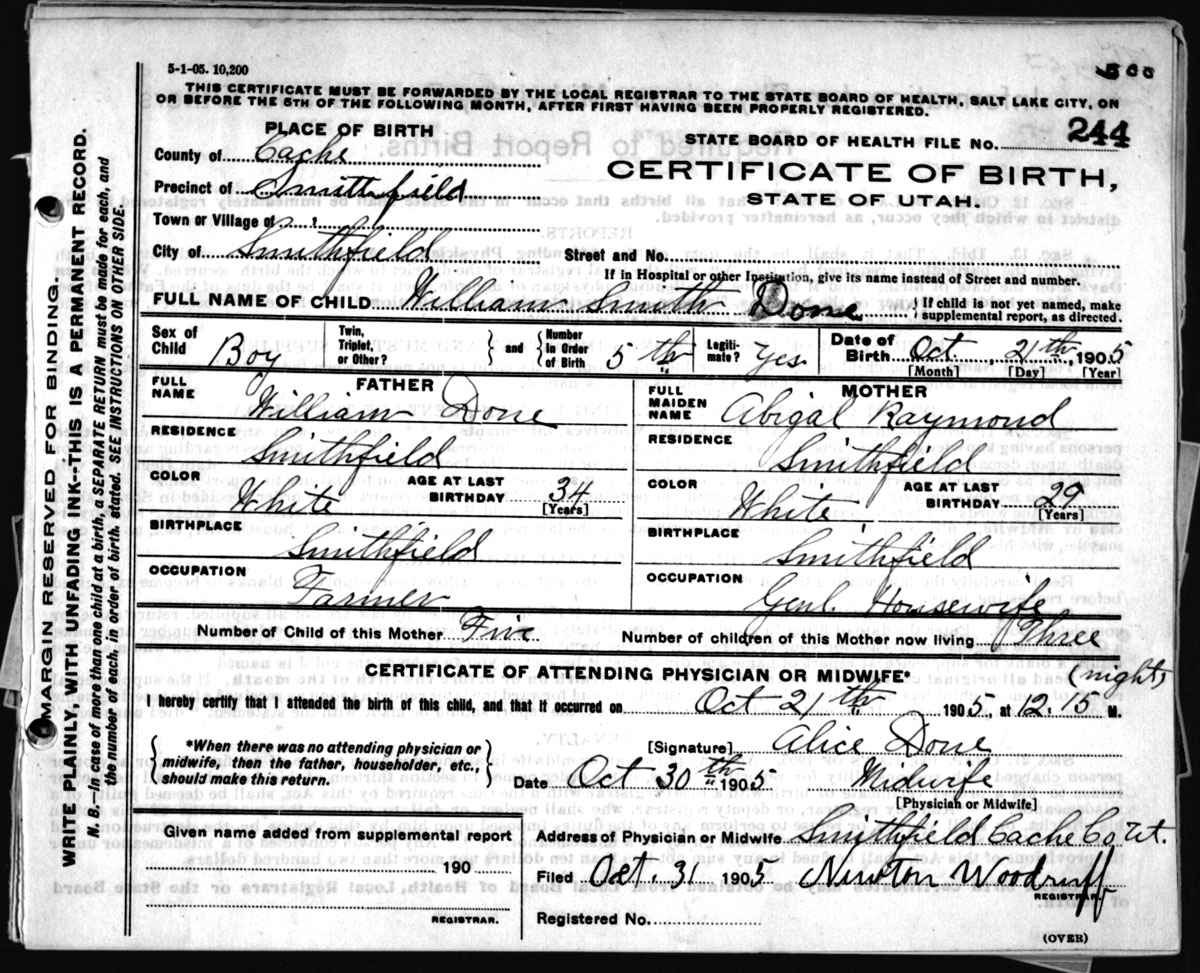 5-1-05. 10,200
500
THIS CERTIFICATE MUST BE FORWARDED BY THE LOCAL REGISTRAR TO THE STATE BOARD OF HEALTH, SALT LAKE CITY, ON
OR BEFORE THE 5TH OF THE FOLLOWING MONTH, AFTER FIRST HAVING BEEN PROPERLY REGISTERED.
PLACE OF BIRTH
STATE BOARD OF HEALTH FILE NO. 244
County of Cache
CERTIFICATE OF BIRTH,
Precinct of Smithfield
STATE OF UTAH.
Town or Village of
City of Smithfield
Street and No.
If in Hospital or other Institution, give its name instead of Street and number.
FULL NAME OF CHILD William Smith Done
{If child is not yet named, make
supplemental report, as directed.
Sex of Child Boy
Twin, Triplet, or Other?
} and {
Number in Order of Birth 5th
Legiti- mate? Yes
Date of Birth Oct. 21th, 1905
[Month] [Day] [Year]
FATHER
FULL NAME William Done
RESIDENCE Smithfield
COLOR White
AGE AT LAST BIRTHDAY 34
[Years]
BIRTHPLACE Smithfield
OCCUPATION Farmer
MOTHER
FULL MAIDEN NAME Abigal Raymond
RESIDENCE Smithfield
COLOR White
AGE AT LAST BIRTHDAY 29
[Years]
BIRTHPLACE Smithfield
OCCUPATION Genl. Housewife
Number of Child of this Mother Five
Number of children of this Mother now living Three
CERTIFICATE OF ATTENDING PHYSICIAN OR MIDWIFE*
(night)
I hereby certify that I attended the birth of this child, and that it occurred on Oct 21th 1905, at 12.15 M.
{*When there was no attending physician or
midwife, then the father, householder, etc.,
should make this return.}
[Signature] Alice Done
Date Oct 30th 1905 Midwife
[Physician or Midwife]
Given name added from supplemental report
190
REGISTRAR.
Address of Physician or Midwife Smithfield Cache Co Ut.
Filed Oct. 31 1905 Newton Woodruff
REGISTRAR.
Registered No.
(OVER)
MARGIN RESERVED FOR BINDING.
WRITE PLAINLY, WITH UNFADING INK--THIS IS A PERMANENT RECORD.
N. B.—In case of more than one child at birth, a SEPARATE RETURN must be made for each, and
the number of each, in order of birth, stated. SEE INSTRUCTIONS ON OTHER SIDE.